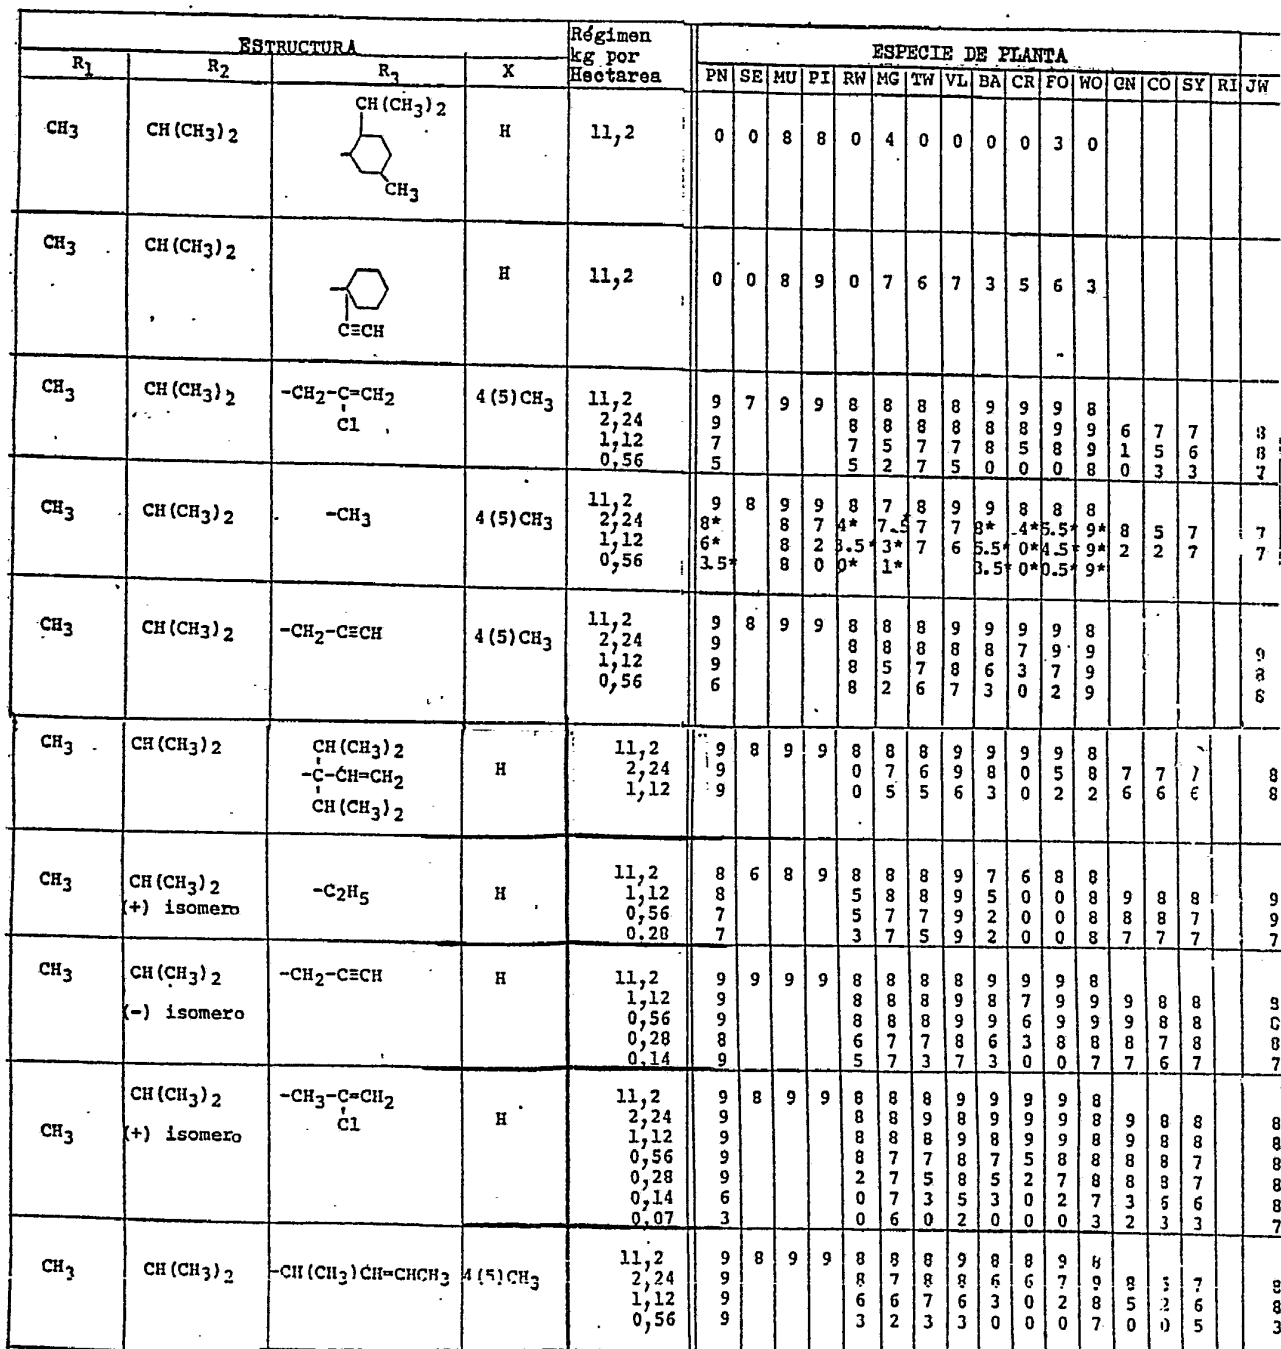 ESTRUCTURA Régimen kg por Hectarea ESPECIE DE PLANTA
R1 R2 R3 X PN SE MU PI RW MG TW VL BA CR FO WO GN CO SY RI JW
CH(CH3)2
CH3 CH(CH3)2 H 11,2 0 0 8 8 0 4 0 0 0 0 3 0
CH3
CH3 CH(CH3)2
H 11,2 0 0 8 9 0 7 6 7 3 5 6 3
C≡CH
CH3 CH(CH3)2 -CH2-C=CH2 4(5)CH3 11,2 9 7 9 9 8 8 8 8 9 9 9 8
Cl 2,24 9 8 8 8 8 8 8 9 9 6 7 7 8
1,12 7 7 5 7 7 8 5 8 9 1 5 6 8
0,56 5 5 2 7 5 0 0 0 8 0 3 3 7
CH3 CH(CH3)2 -CH3 4(5)CH3 11,2 9 8 9 9 8 7 8 9 9 8 8 8
2,24 8* 8 7 4* 7.5 7 7 8* .4* 5.5* 9* 8 5 7 7
1,12 6* 8 2 3.5* 3* 7 6 5.5* 0* 4.5* 9* 2 2 7 7
0,56 3.5* 8 0 0* 1* 3.5* 0* 0.5* 9*
CH3 CH(CH3)2 -CH2-C≡CH 4(5)CH3 11,2 9 8 9 9 8 8 8 9 9 9 9 8
2,24 9 8 8 8 8 8 7 9 9 9
1,12 9 8 5 7 8 6 3 7 9 8
0,56 6 8 2 6 7 3 0 2 9 6
CH3 CH(CH3)2 CH(CH3)2 11,2 9 8 9 9 8 8 8 9 9 9 9 8
-C-CH=CH2 H 2,24 9 0 7 6 9 8 0 5 8 7 7 8
CH(CH3)2 1,12 9 0 5 5 6 3 0 2 2 6 6 6 8
CH3 CH(CH3)2 -C2H5 H 11,2 8 6 8 9 8 8 8 9 7 6 8 8
(+) isomero 1,12 8 5 8 8 9 5 0 0 8 9 8 8 9
0,56 7 5 7 7 9 2 0 0 8 8 8 7 9
0.28 7 3 7 5 9 2 0 0 8 7 7 7 7
CH3 CH(CH3)2 -CH2-C≡CH H 11,2 9 9 9 9 8 8 8 8 9 9 9 8
(-) isomero 1,12 9 8 8 8 9 8 7 9 9 9 8 8 9
0,56 9 8 8 8 9 9 6 9 9 9 8 8
0,28 8 6 7 7 8 6 3 8 8 8 7 8 8
0.14 9 5 7 3 7 3 0 0 7 7 6 7 7
CH(CH3)2 -CH3-C=CH2 11,2 9 8 9 9 8 8 8 9 9 9 9 8
CH3 (+) isomero Cl H 2,24 9 8 8 9 8 9 9 9 8 9 8 8 8
1,12 9 8 8 8 9 8 9 9 8 9 8 8 8
0,56 9 8 7 7 8 7 5 8 8 8 8 7 8
0,28 9 2 7 5 8 5 2 7 8 8 8 7 8
0,14 6 0 7 3 5 3 0 2 7 3 6 6 8
0,07 3 0 6 0 2 0 0 0 3 2 3 3 7
CH3 CH(CH3)2 -CH(CH3)CH=CHCH3 4(5)CH3 11,2 9 8 9 9 8 8 8 9 8 8 9 8
2,24 9 8 7 8 8 6 6 7 9 8 7 8
1,12 9 6 6 7 6 3 0 2 8 5 2 6 8
0,56 9 3 2 3 3 0 0 0 7 0 0 5 3